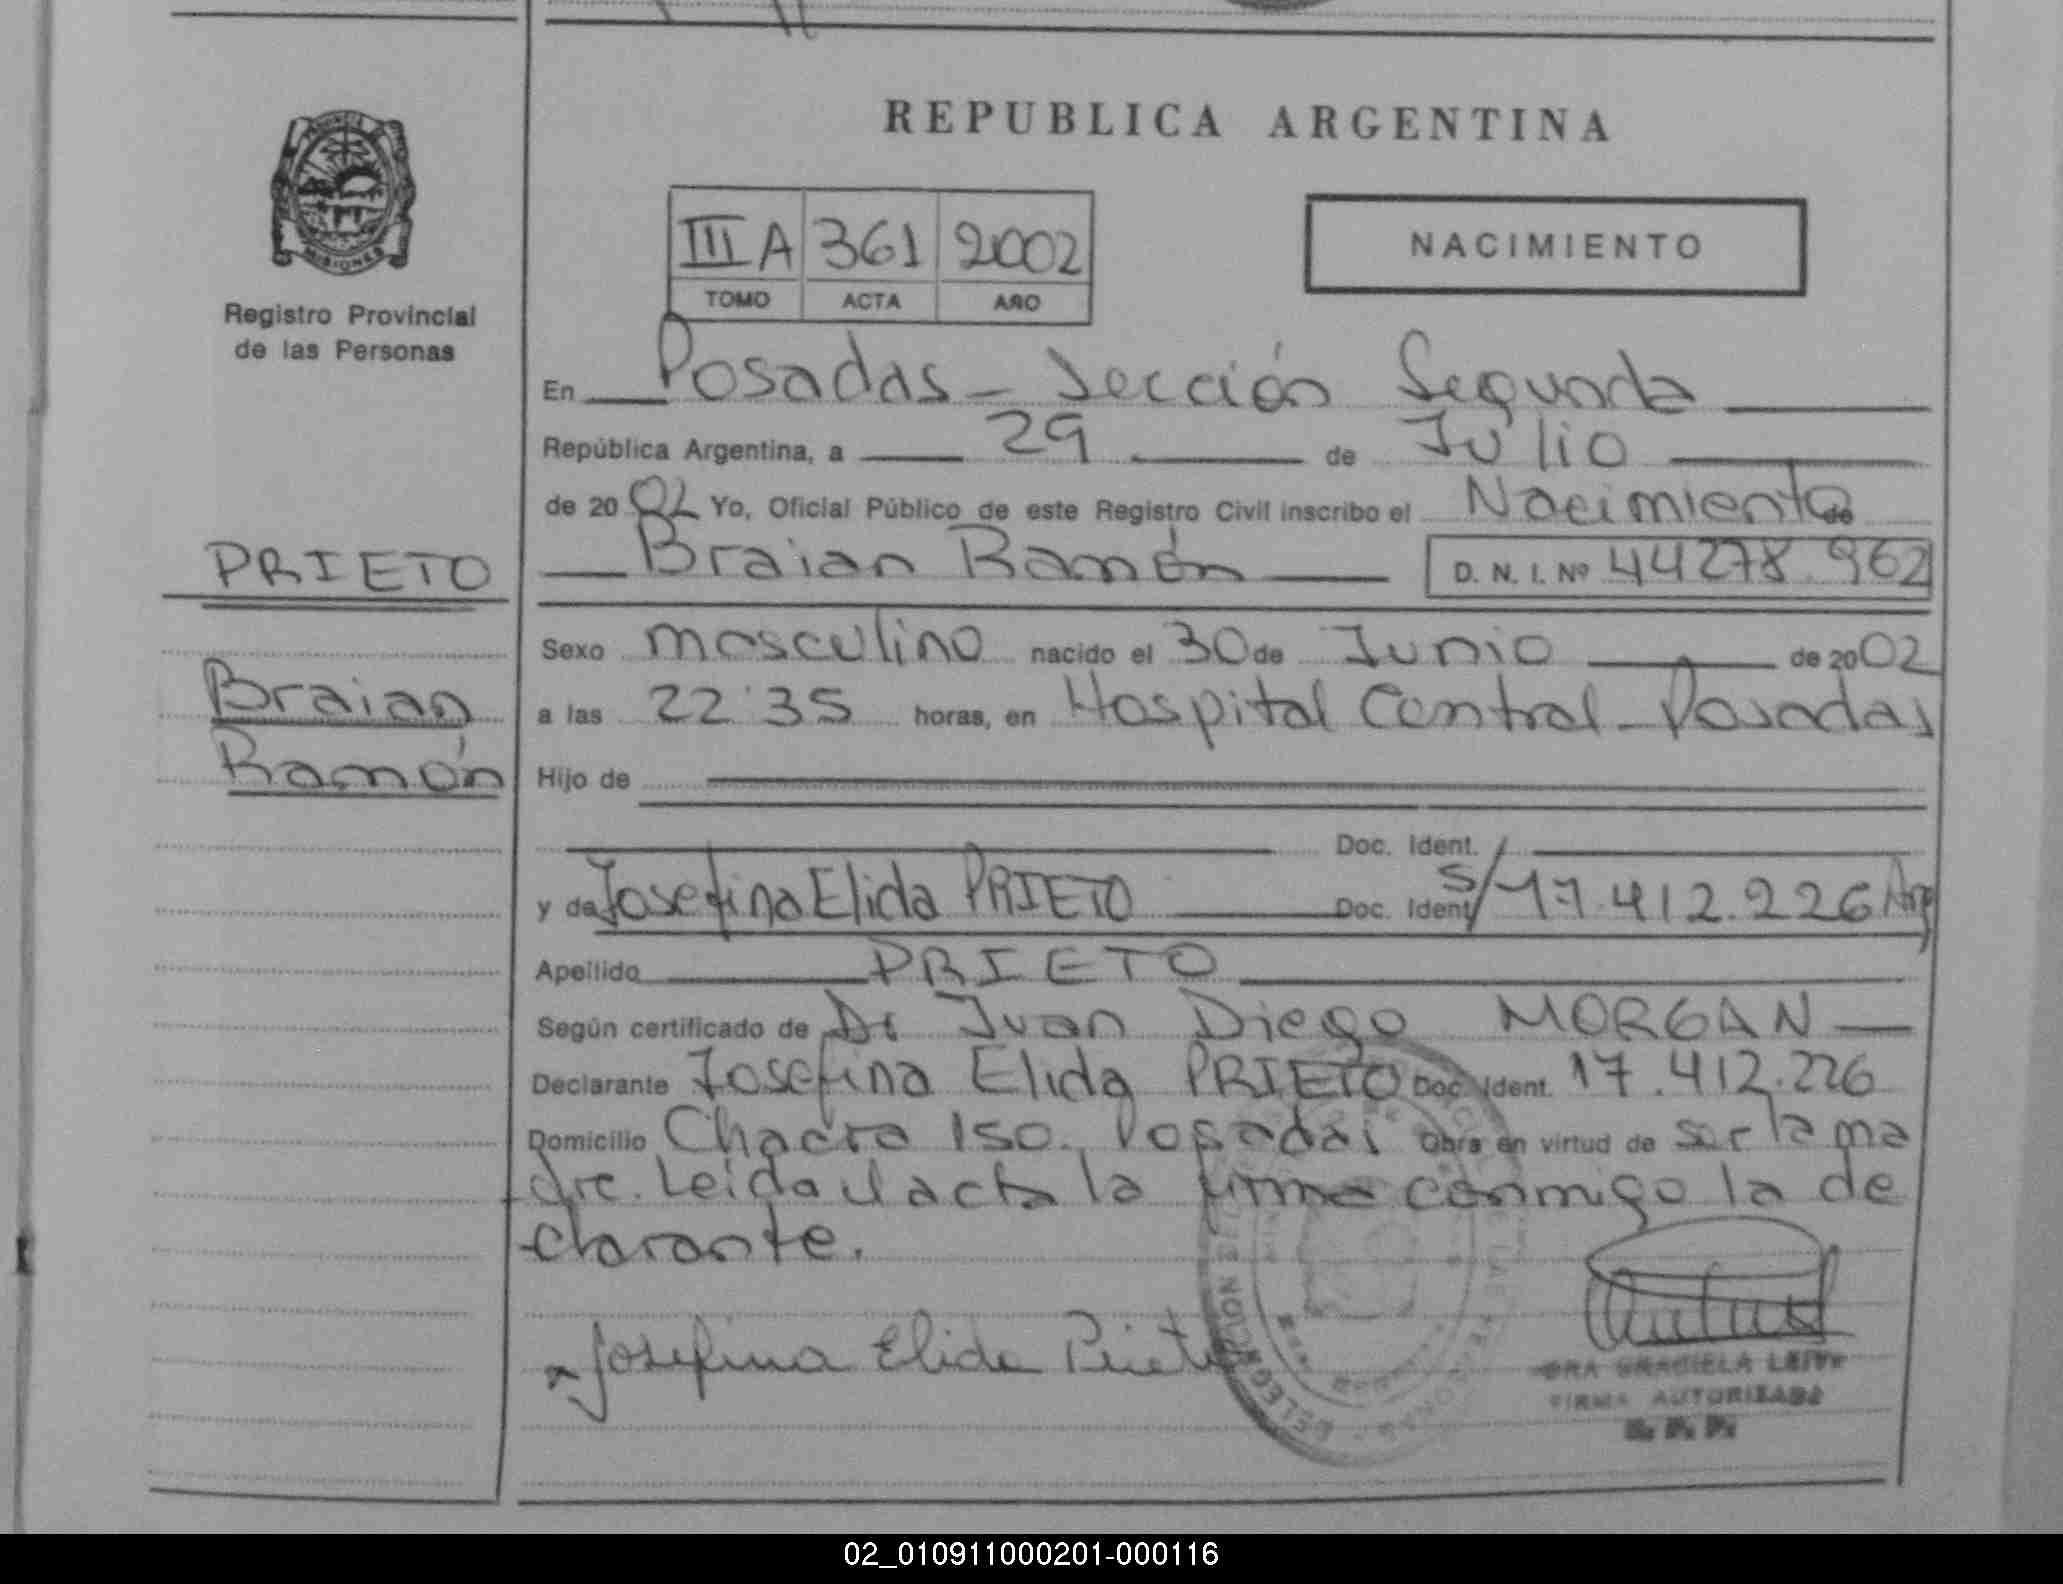 REPUBLICA ARGENTINA
MISIONES
Registro Provincial
de las Personas
III A 361 2002
TOMO ACTA AÑO
NACIMIENTO
En Posadas - Sección Segunda
República Argentina, a 29 de Julio
de 2002 Yo, Oficial Público de este Registro Civil inscribo el Nacimiento de
Braian Ramón D. N. I. Nº 44278.962
PRIETO
Braian
Ramón
Sexo masculino nacido el 30 de Junio de 2002
a las 22:35 horas, en Hospital Central - Posadas
Hijo de
Doc. Ident.
y de Josefina Elida PRIETO Doc. Ident. S/ 17.412.226 Arg
Apellido PRIETO
Según certificado de Dr Juan Diego MORGAN
Declarante Josefina Elida PRIETO Doc. Ident. 17.412.226
Domicilio Chacra 150. Posadas Obra en virtud de ser la ma
dre. Leida el acta la firma conmigo la de
clarante.
Josefina Elida Prieto
DELEGACION
DRA GRACIELA
FIRMA AUTORIZADA
02_010911000201-000116